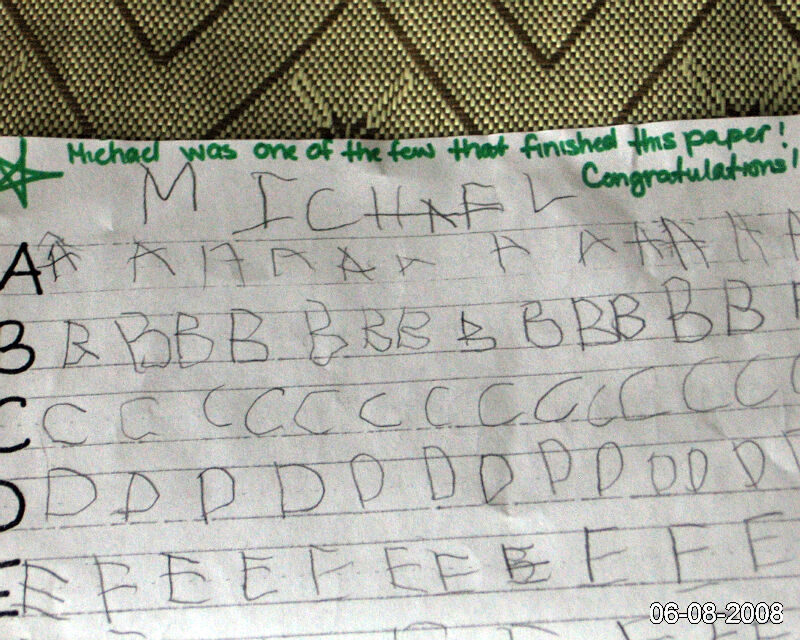 Michael was one of the few that finished this paper!
Congratulations!
MICHAEL
A A A A A A A A A A A A A
B B B B B B B B B B B B B B
C C C C C C C C C C C C C C
D D D D D D D D D D D D D
E E E E E E E E E E E E
06-08-2008